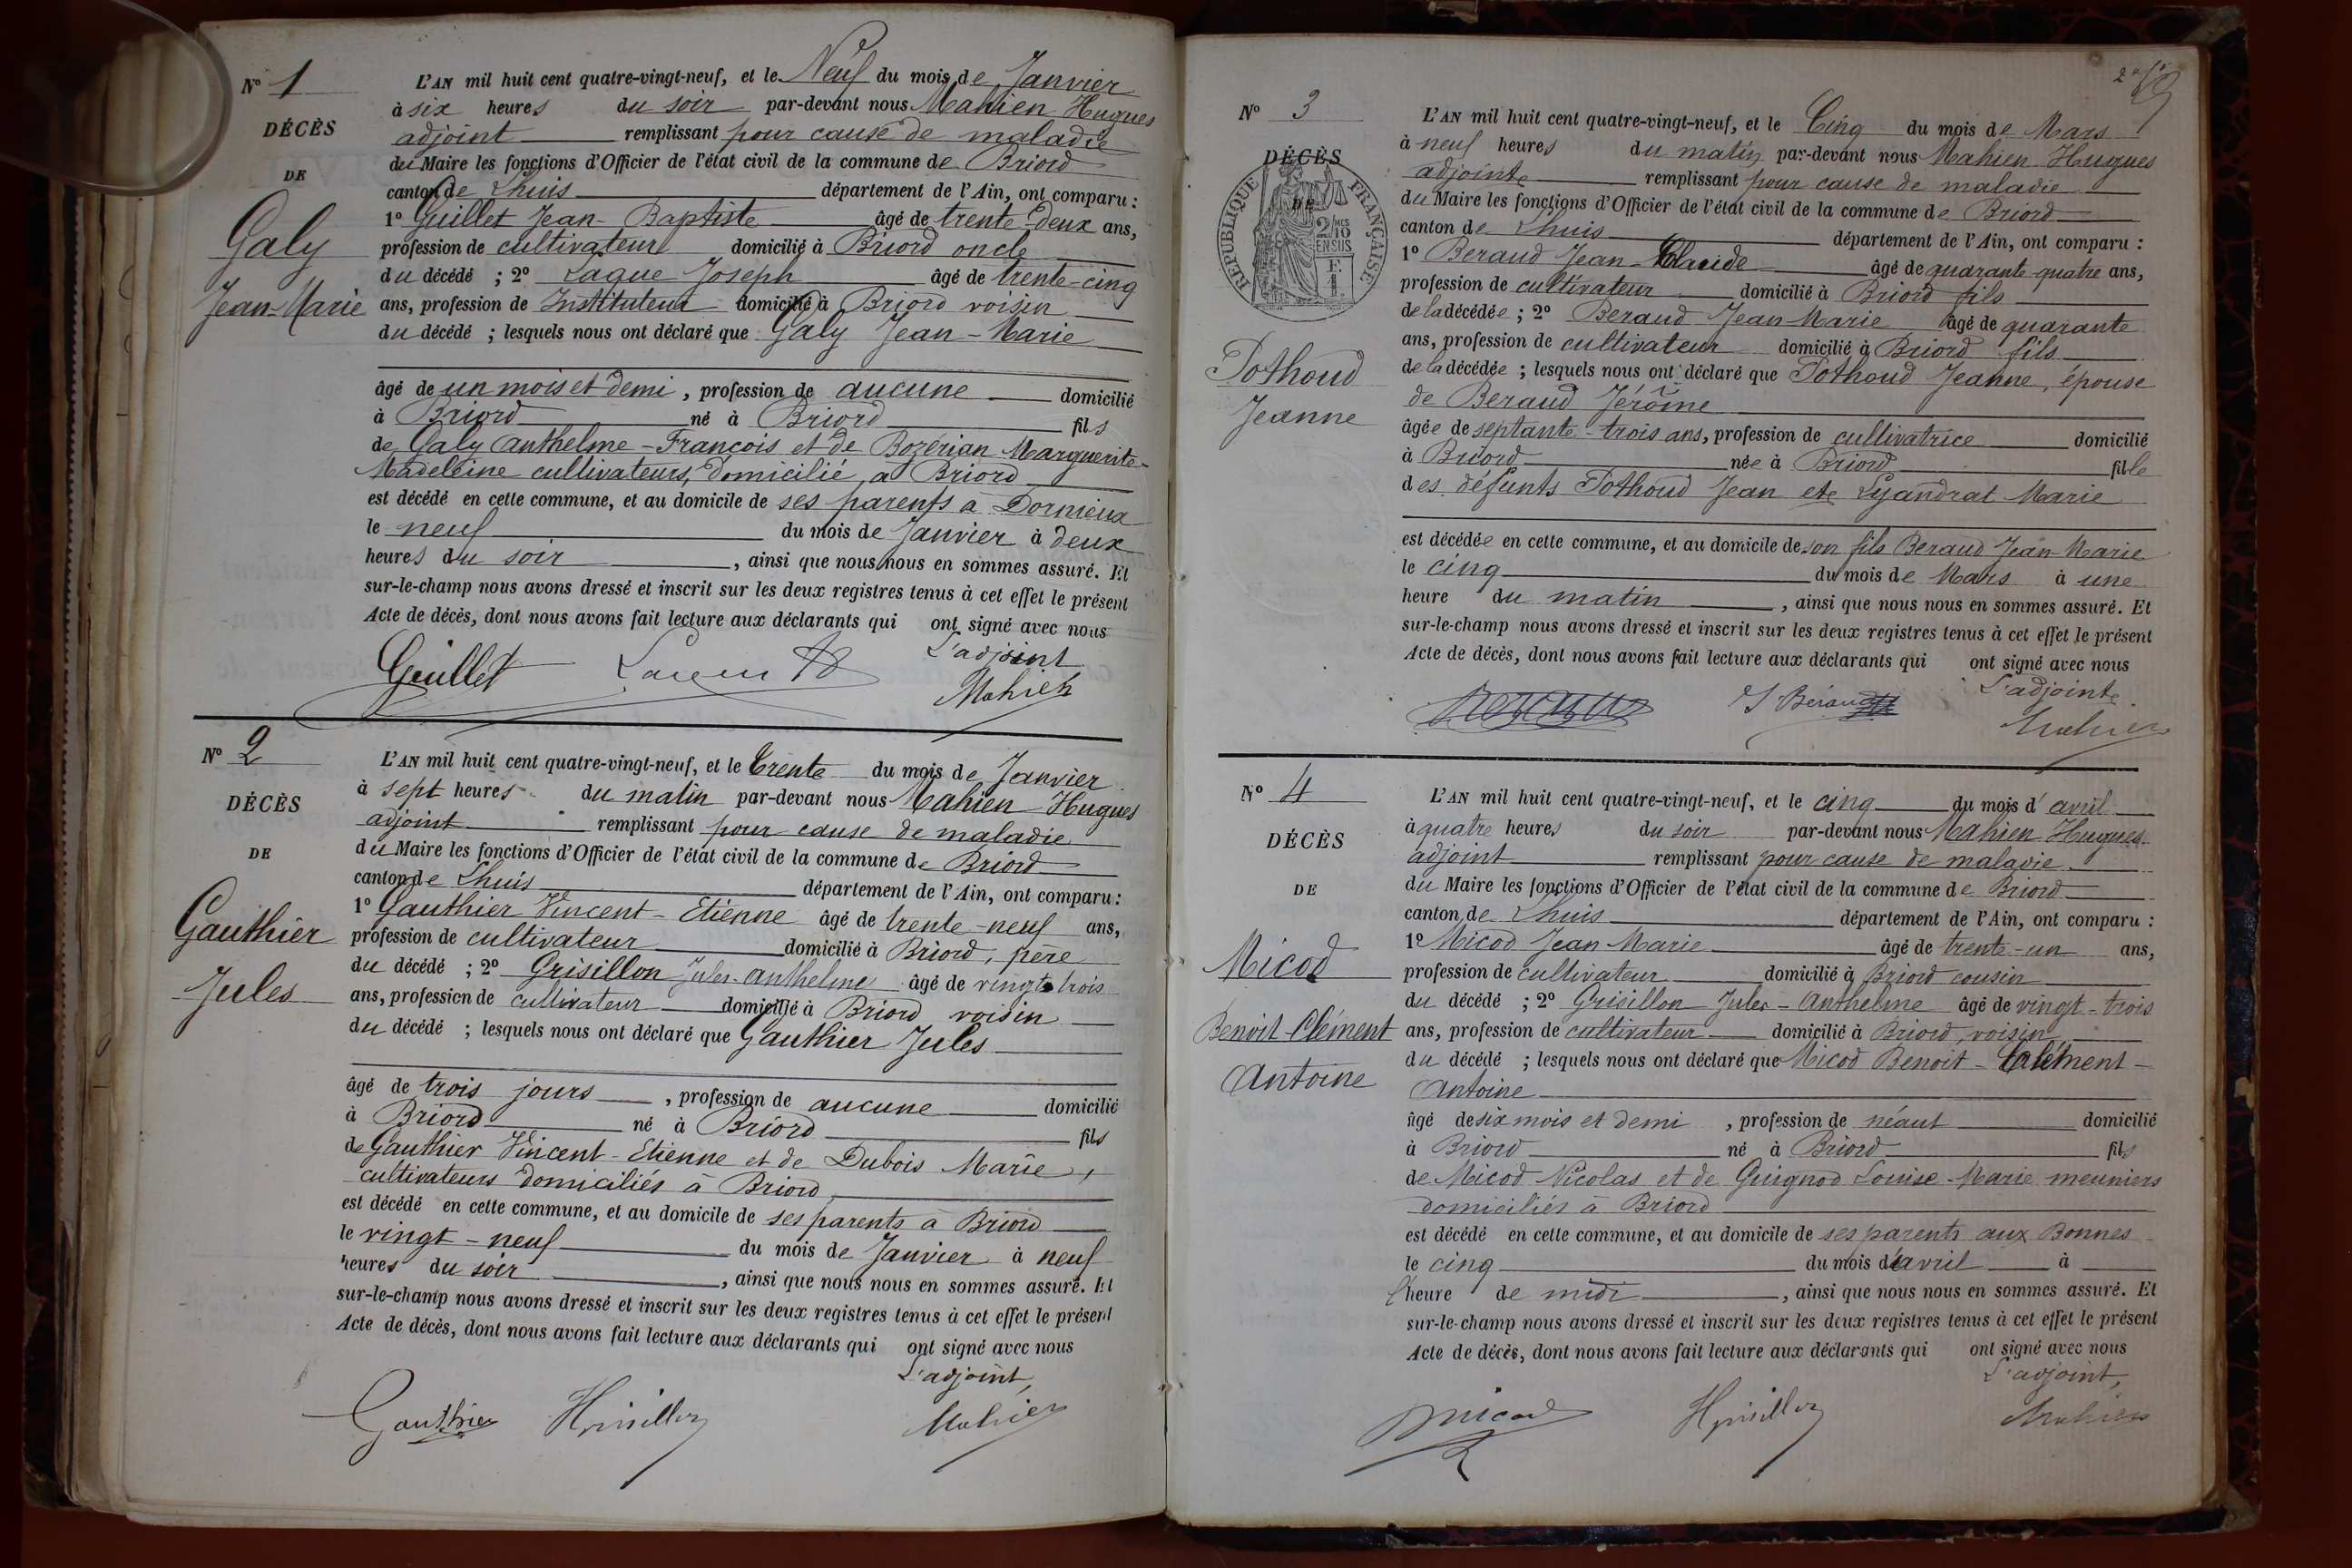 N° 1
DÉCÈS
DE
Galy
Jean-Marie
L'AN mil huit cent quatre-vingt-neuf, et le Neuf du mois de Janvier
à six heures du soir par-devant nous Mahien Hugues
adjoint remplissant pour cause de maladie
du Maire les fonctions d'Officier de l'état civil de la commune de Briord
canton de Lhuis département de l'Ain, ont comparu :
1° Guillet Jean-Baptiste âgé de trente-deux ans,
profession de cultivateur domicilié à Briord oncle
du décédé ; 2° Lague Joseph âgé de trente-cinq
ans, profession de Instituteur domicilié à Briord voisin
du décédé ; lesquels nous ont déclaré que Galy Jean-Marie
âgé de un mois et demi, profession de aucune domicilié
à Briord né à Briord fils
de Galy Anthelme-François et de Bozérian Marguerite-
Madeleine cultivateurs, domicilié à Briord
est décédé en cette commune, et au domicile de ses parents à Dornieux
le neuf du mois de Janvier à deux
heures du soir, ainsi que nous nous en sommes assuré. Et
sur-le-champ nous avons dressé et inscrit sur les deux registres tenus à cet effet le présent
Acte de décès, dont nous avons fait lecture aux déclarants qui ont signé avec nous
L'adjoint
Guillet Mahien
N° 2
DÉCÈS
DE
Gauthier
Jules
L'AN mil huit cent quatre-vingt-neuf, et le trente du mois de Janvier
à sept heures du matin par-devant nous Mahien Hugues
adjoint remplissant pour cause de maladie
du Maire les fonctions d'Officier de l'état civil de la commune de Briord
canton de Lhuis département de l'Ain, ont comparu :
1° Gauthier Vincent-Etienne âgé de trente-neuf ans,
profession de cultivateur domicilié à Briord, père
du décédé ; 2° Grisillon Jules-Anthelme âgé de vingt-trois
ans, profession de cultivateur domicilié à Briord voisin
du décédé ; lesquels nous ont déclaré que Gauthier Jules
âgé de trois jours, profession de aucune domicilié
à Briord né à Briord fils
de Gauthier Vincent-Etienne et de Dubois Marie,
cultivateurs domiciliés à Briord
est décédé en cette commune, et au domicile de ses parents à Briord
le vingt-neuf du mois de Janvier à neuf
heures du soir, ainsi que nous nous en sommes assuré. Et
sur-le-champ nous avons dressé et inscrit sur les deux registres tenus à cet effet le présent
Acte de décès, dont nous avons fait lecture aux déclarants qui ont signé avec nous
L'adjoint,
Gauthier Grisillon Mahien
N° 3
DÉCÈS
DE
RÉPUBLIQUE FRANÇAISE
2/10
EN SUS
Pothoud
Jeanne
L'AN mil huit cent quatre-vingt-neuf, et le Cinq du mois de Mars
à neuf heures du matin par-devant nous Mahien Hugues
adjoint remplissant pour cause de maladie
du Maire les fonctions d'Officier de l'état civil de la commune de Briord
canton de Lhuis département de l'Ain, ont comparu :
1° Beraud Jean-Claude âgé de quarante-quatre ans,
profession de cultivateur domicilié à Briord fils
de la décédée ; 2° Beraud Jean-Marie âgé de quarante
ans, profession de cultivateur domicilié à Briord fils
de la décédée ; lesquels nous ont déclaré que Pothoud Jeanne, épouse
de Beraud Jérôme
âgée de septante-trois ans, profession de cultivatrice domicilié
à Briord née à Briord fille
des défunts Pothoud Jean et Lyandrat Marie
est décédée en cette commune, et au domicile de son fils Beraud Jean-Marie
le cinq du mois de Mars à une
heure du matin, ainsi que nous nous en sommes assuré. Et
sur-le-champ nous avons dressé et inscrit sur les deux registres tenus à cet effet le présent
Acte de décès, dont nous avons fait lecture aux déclarants qui ont signé avec nous
L'adjoint
J Béraud Mahien
N° 4
DÉCÈS
DE
Micod
Benoit-Clément
Antoine
L'AN mil huit cent quatre-vingt-neuf, et le cinq du mois d'avril
à quatre heures du soir par-devant nous Mahien Hugues
adjoint remplissant pour cause de maladie
du Maire les fonctions d'Officier de l'état civil de la commune de Briord
canton de Lhuis département de l'Ain, ont comparu :
1° Micod Jean-Marie âgé de trente-un ans,
profession de cultivateur domicilié à Briord cousin
du décédé ; 2° Grisillon Jules-Anthelme âgé de vingt-trois
ans, profession de cultivateur domicilié à Briord, voisin
du décédé ; lesquels nous ont déclaré que Micod Benoit-Clément-
Antoine
âgé de six mois et demi, profession de néant domicilié
à Briord né à Briord fils
de Micod Nicolas et de Guignod Louise-Marie meuniers
domiciliés à Briord
est décédé en cette commune, et au domicile de ses parents aux Bonnes
le cinq du mois d'avril à
l'heure de midi, ainsi que nous nous en sommes assuré. Et
sur-le-champ nous avons dressé et inscrit sur les deux registres tenus à cet effet le présent
Acte de décès, dont nous avons fait lecture aux déclarants qui ont signé avec nous
L'adjoint,
Micod Grisillon Mahien